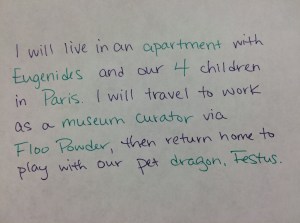 I will live in an apartment with
Eugenides and our 4 children
in Paris. I will travel to work
as a museum curator via
Floo Powder, then return home to
play with our pet dragon, Festus.